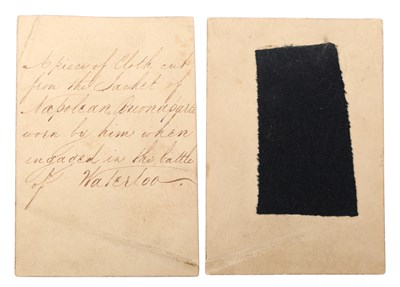 A piece of Cloth cut
from the Jacket of
Napolean Buonaparte
worn by him when
engaged in the battle
of Waterloo.